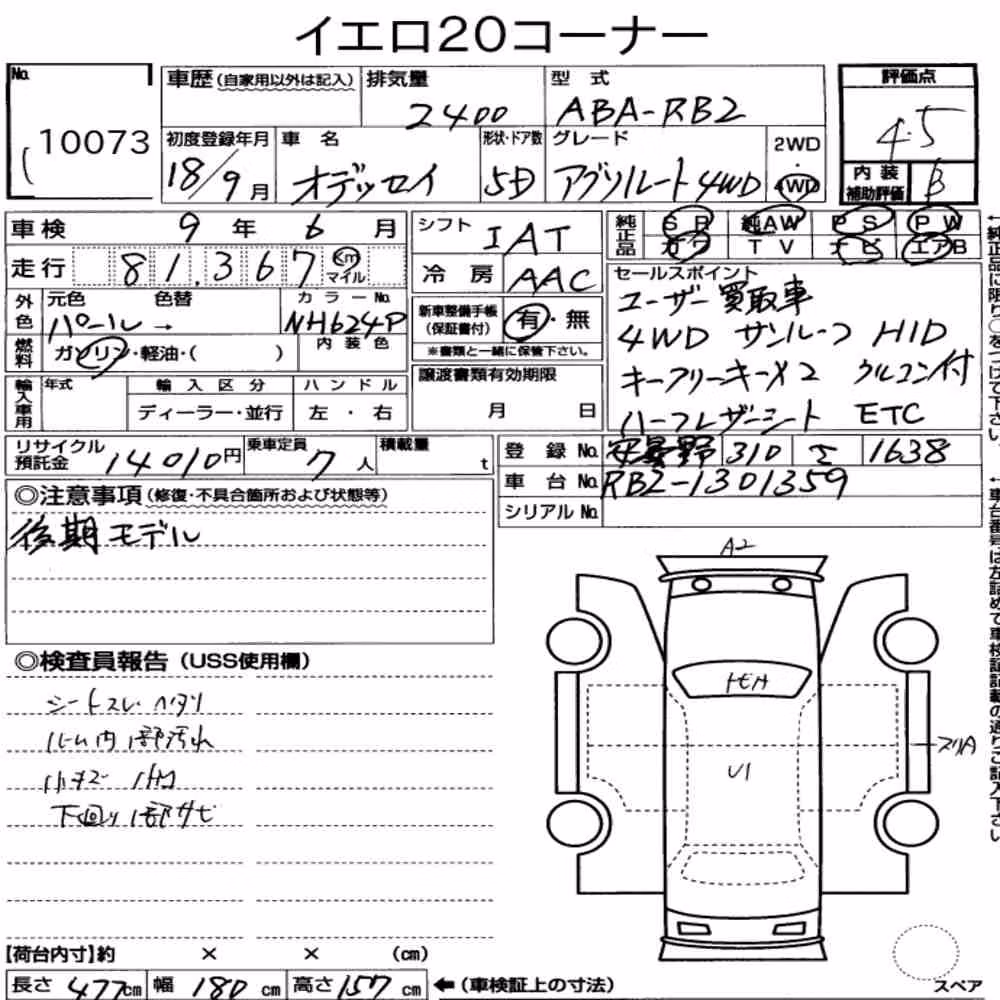 イエロ20コーナー
No.
10073
車歴(自家用以外は記入)
排気量
2400
型式
ABA-RB2
評価点
4.5
初度登録年月
18/9月
車名
オデッセイ
形状・ドア数
5D
グレード
アブソルート4WD
2WD
4WD
内装
補助評価
B
車検 9年 6月
シフト
IAT
純正品
SR 純AW PS PW
カワ TV ナビ エアB
走行 81,367 km マイル
冷房
AAC
外色
元色 色替
パール→
カラーNo.
NH624P
新車整備手帳
(保証書付)
有・無
※書類と一緒に保管下さい。
セールスポイント
ユーザー買取車
4WD サンルーフ HID
キーフリーキー×2 クルコン付
ハーフレザーシート ETC
燃料
ガソリン・軽油・( )
内装色
輸入車用
年式
輸入区分
ハンドル
ディーラー・並行
左・右
譲渡書類有効期限
月 日
リサイクル
預託金
14010円
乗車定員
7人
積載量
t
登録No.
310
1638
車台No.
RB2-1301359
シリアルNo.
◎注意事項(修復・不具合箇所および状態等)
後期モデル
◎検査員報告(USS使用欄)
シートスレ ヘタリ
ルーム内1部汚れ
小キズ
下回り1部サビ
A2
トビA
U1
スリA
【荷台内寸】約 × × (cm)
長さ 477cm 幅 180cm 高さ 157cm ←(車検証上の寸法)
スペア
←純正品に限り○をつけて下さい。
←車台番号は左詰めで車検証記載の通りご記入下さい。